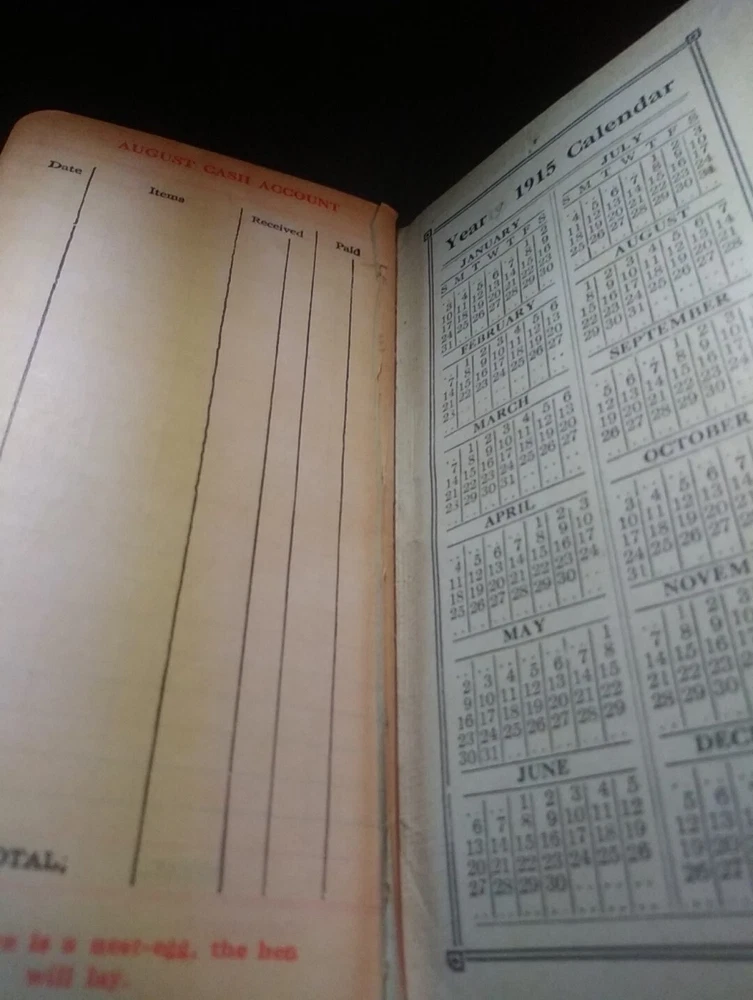 AUGUST CASH ACCOUNT
Date Items Received Paid
OTAL,
is a nest-egg, the hen
will lay.
Year 1915 Calendar
JANUARY
S M T W T F S
1 2
3 4 5 6 7 8 9
10 11 12 13 14 15 16
17 18 19 20 21 22 23
24 25 26 27 28 29 30
31
FEBRUARY
1 2 3 4 5 6
7 8 9 10 11 12 13
14 15 16 17 18 19 20
21 22 23 24 25 26 27
28
MARCH
1 2 3 4 5 6
7 8 9 10 11 12 13
14 15 16 17 18 19 20
21 22 23 24 25 26 27
28 29 30 31
APRIL
1 2 3
4 5 6 7 8 9 10
11 12 13 14 15 16 17
18 19 20 21 22 23 24
25 26 27 28 29 30
MAY
1
2 3 4 5 6 7 8
9 10 11 12 13 14 15
16 17 18 19 20 21 22
23 24 25 26 27 28 29
30 31
JUNE
1 2 3 4 5
6 7 8 9 10 11 12
13 14 15 16 17 18 19
20 21 22 23 24 25 26
27 28 29 30
JULY
S M T W T F S
1 2 3
4 5 6 7 8 9 10
11 12 13 14 15 16 17
18 19 20 21 22 23 24
25 26 27 28 29 30 31
AUGUST
1 2 3 4 5 6 7
8 9 10 11 12 13 14
15 16 17 18 19 20 21
22 23 24 25 26 27 28
29 30 31
SEPTEMBER
1 2 3
5 6 7 8 9 10
12 13 14 15 16 17
19 20 21 22 23 24
26 27 28 29 30
OCTOBER
3 4 5 6 7
10 11 12 13 14
17 18 19 20 21
24 25 26 27 28
31
NOVEM
1 2 3
7 8 9 10
14 15 16 17
21 22 23 24
28 29 30
DEC
5 6 7
12 13 14
19 20 21
26 27